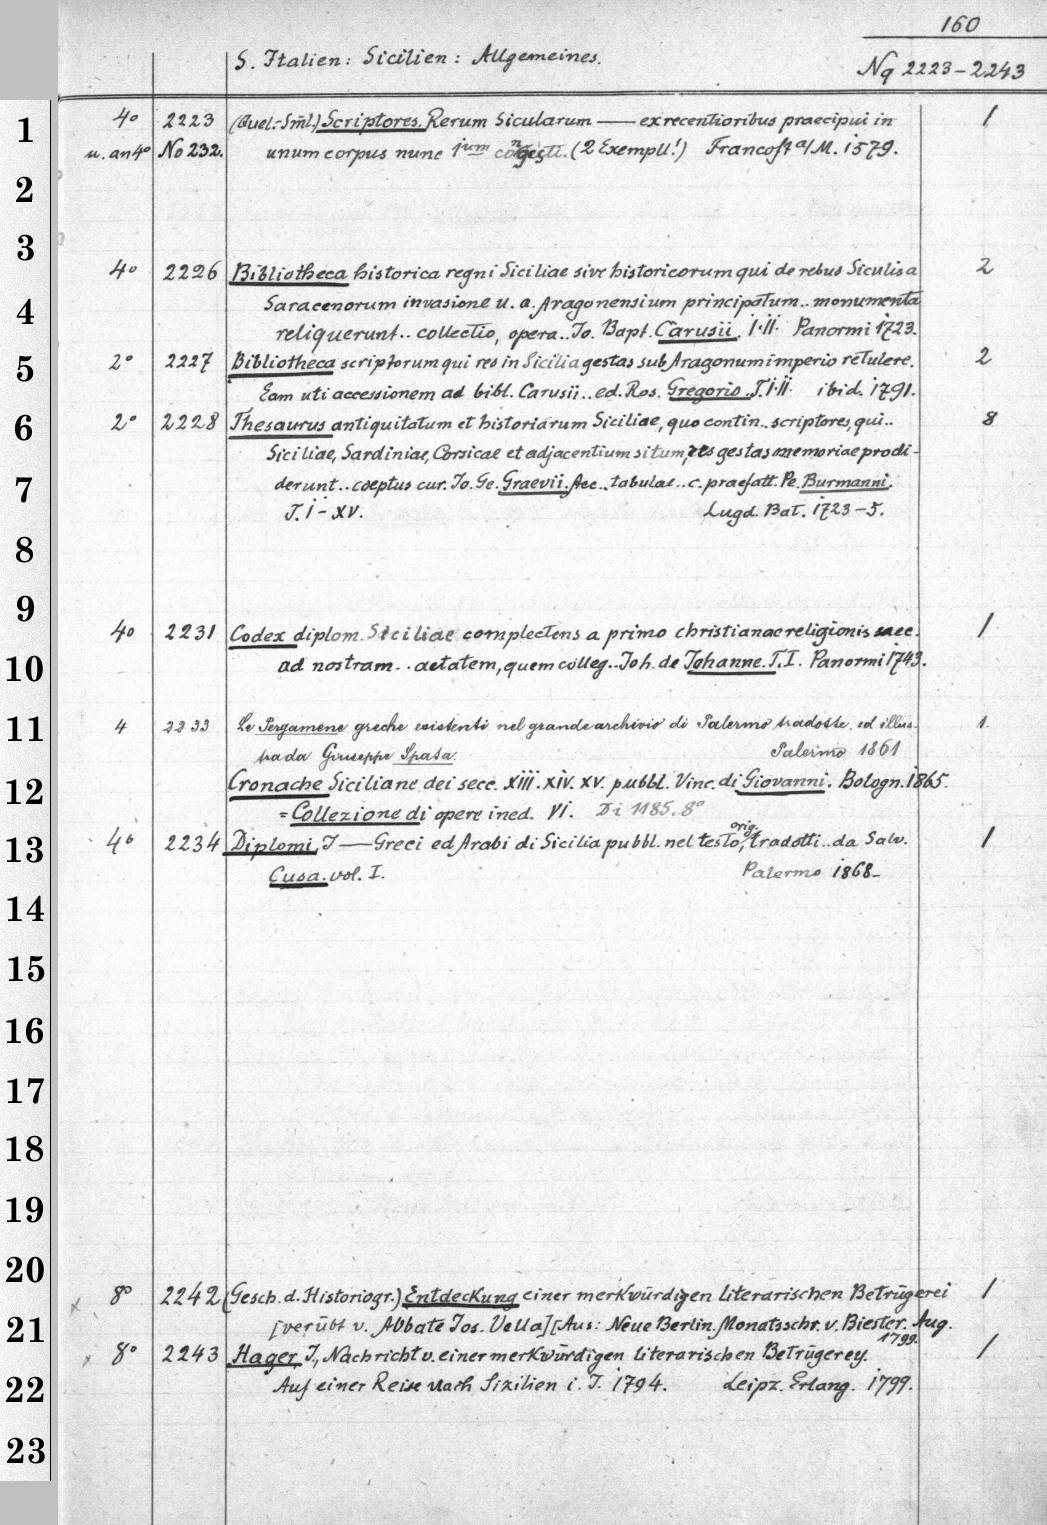 160
S. Italien: Sicilien: Allgemeines.
Nq 2223-2243
1
4° 2223 (Quel.-Sml.) Scriptores. Rerum Sicularum — ex recentioribus praecipui in 1
u. an 4° No 232. unum corpus nunc 1um congesti. (2 Exempll!) Francoft a/M. 1579.
2
3
4° 2226 Bibliotheca historica regni Siciliae sive historicorum qui de rebus Siculis a 2
4
Saracenorum invasione u. a. Aragonensium principatum.. monumenta
reliquerunt.. collectio, opera.. Jo. Bapt. Carusii. I.II. Panormi 1723.
5
2° 2227 Bibliotheca scriptorum qui res in Sicilia gestas sub Aragonum imperio retulere. 2
Eam uti accessionem ad bibl. Carusii.. ed. Ros. Gregorio. T.I.II. ibid. 1791.
6
2° 2228 Thesaurus antiquitatum et historiarum Siciliae, quo contin.. scriptores, qui.. 8
Siciliae, Sardiniae, Corsicae et adjacentium situm, res gestas memoriae prodi-
7
derunt.. coeptus cur. Jo. Ge. Graevii. Acc.. tabulae.. c. praefatt. Pe. Burmanni.
T. I-XV. Lugd. Bat. 1723-5.
8
9
4° 2231 Codex diplom. Siciliae complectens a primo christianae religionis saec. 1
10
ad nostram.. aetatem, quem colleg.. Joh. de Johanne. T.I. Panormi 1743.
11
4 2233 Le Pergamene greche esistenti nel grande archivio di Palermo tradotte ed illus- 1
trada Giuseppe Spata. Palermo 1861
12
Cronache Siciliane dei secc. XIII. XIV. XV. pubbl. Vinc. di Giovanni. Bologn. 1865.
= Collezione di opere ined. VI. Di 1185. 8°
13
4° 2234 Diplomi, I — Greci ed Arabi di Sicilia pubbl. nel testo orig., tradotti.. da Salv. 1
Cusa. vol. I. Palermo 1868-
14
15
16
17
18
19
20
x 8° 2242 (Gesch. d. Historiogr.) Entdeckung einer merkwürdigen literarischen Betrügerei 1
21
[verübt v. Abbate Jos. Vella] [Aus: Neue Berlin. Monatsschr. v. Biester. Aug. 1799.
x 8° 2243 Hager, J., Nachricht v. einer merkwürdigen literarischen Betrügerey. 1
22
Auf einer Reise nach Sizilien i. J. 1794. Leipz. Erlang. 1799.
23